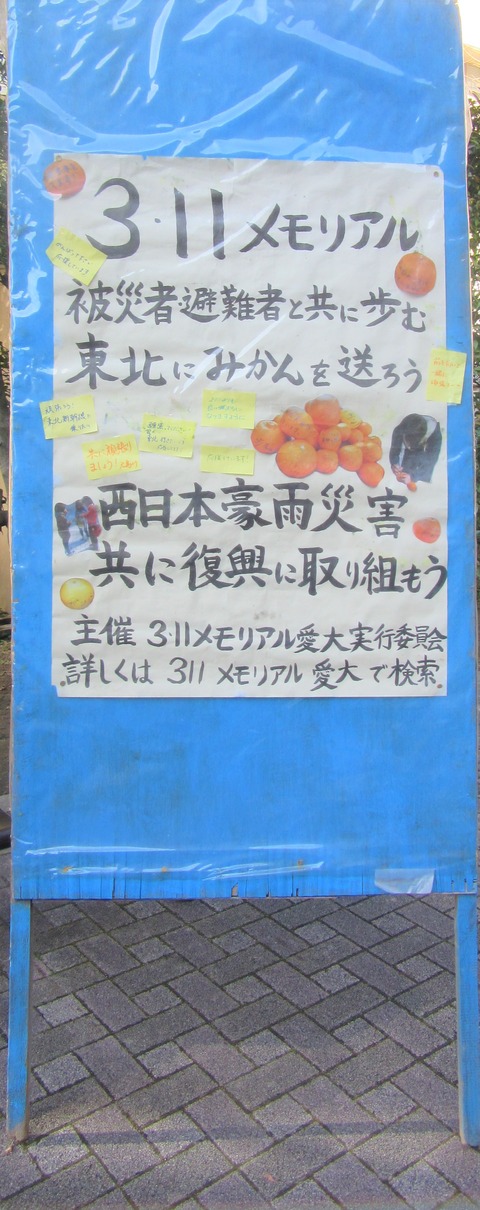 3・11 メモリアル
被災者避難者と共に歩む
東北にみかんを送ろう
西日本豪雨災害
共に復興に取り組もう
主催 3・11メモリアル愛大実行委員会
詳しくは 311 メモリアル 愛大 で検索